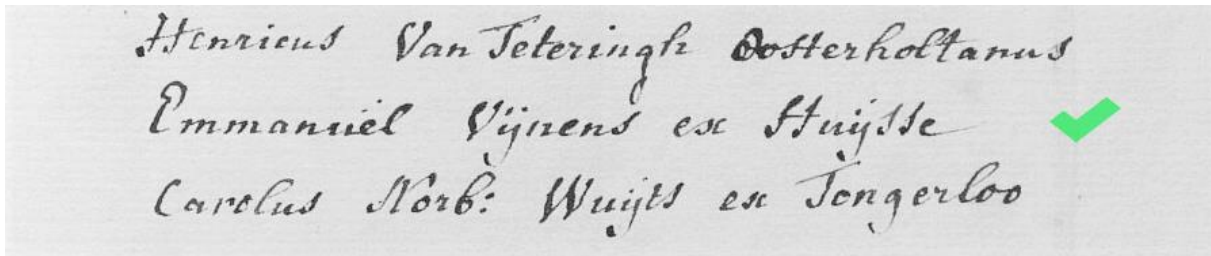 Henricus Van Teteringh Oosterholtanus
Emmanuël Vijnens ex Huijsse
Carolus Norb: Wuijts ex Tongerloo